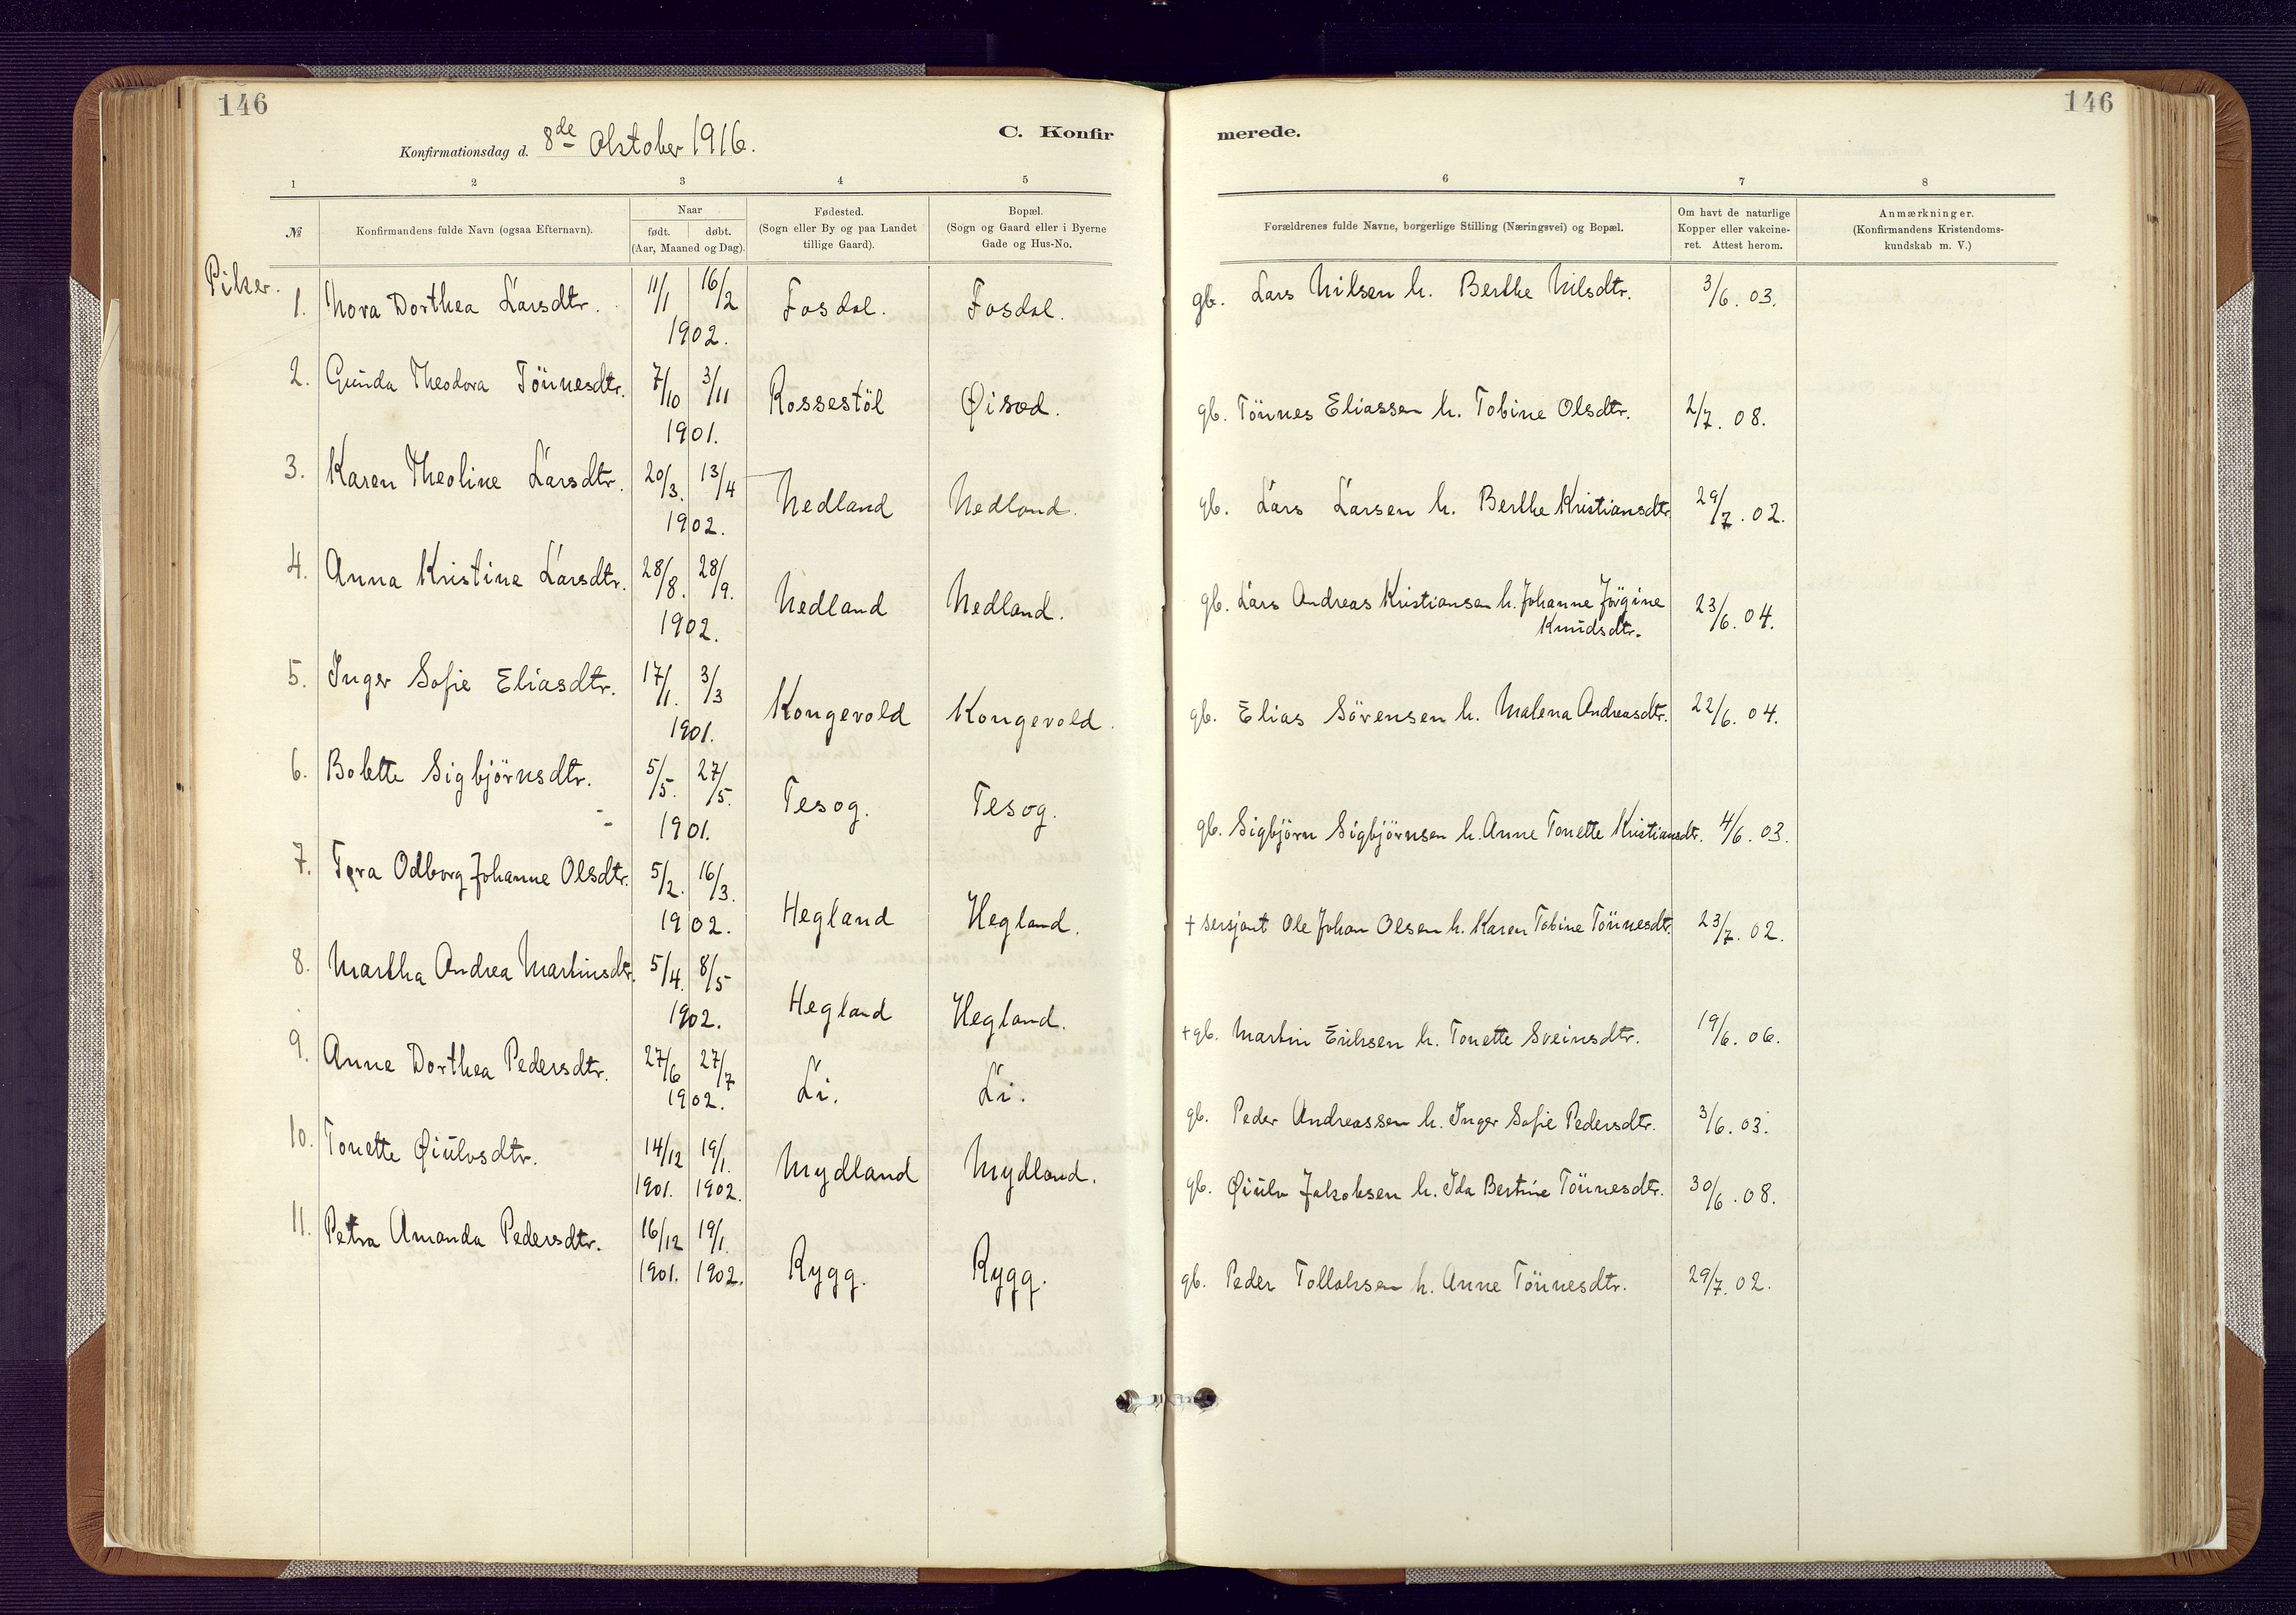 146
146
Konfirmationsdag d. 8de Oktober 1916.
C. Konfir
merede.
1 2 3 4 5
6 7 8
№
Konfirmandens fulde Navn (ogsaa Efternavn).
Naar
født. døbt.
(Aar, Maaned og Dag).
Fødested.
(Sogn eller By og paa Landet
tillige Gaard).
Bopæl.
(Sogn og Gaard eller i Byerne
Gade og Hus-No.
Forældrenes fulde Navne, borgerlige Stilling (Næringsvei) og Bopæl.
Om havt de naturlige
Kopper eller vakcine-
ret. Attest herom.
Anmærkninger.
(Konfirmandens Kristendoms-
kundskab m. V.)
Piker.
1. Nora Dorthea Larsdtr. 11/1 16/2 Fosdal. Fosdal. gb. Lars Nilsen h. Berthe Nilsdtr. 3/6. 03.
1902.
2. Gunda Theodora Tönnesdtr. 7/10 3/11 Rossestöl Øisæd. gb. Tönnes Eliassen h. Tobine Olsdtr. 2/7. 08.
1901.
3. Karen Theoline Larsdtr. 20/3. 13/4 Nedland Nedland. gb. Lars Larsen h. Berthe Kristiansdtr. 29/7. 02.
1902.
4. Anna Kristine Larsdtr. 28/8. 28/9. Nedland Nedland. gb. Lars Andreas Kristiansen h. Johanne Jörgine 23/6. 04.
Knudsdtr.
1902.
5. Inger Sofie Eliasdtr. 17/1. 3/3 Kongevold Kongevold. gb. Elias Sörensen h. Malena Andreasdtr. 22/6. 04.
1901.
6. Bolette Sigbjörnsdtr. 5/5. 27/5. Tesog. Tesog. gb. Sigbjörn Sigbjörnsen h. Anne Tonette Kristiansdtr. 4/6. 03.
1901.
7. Tora Odborg Johanne Olsdtr. 5/2. 16/3. Hegland Hegland. + sersjant Ole Johan Olsen h. Karen Tobine Tönnesdtr. 23/7. 02.
1902.
8. Martha Andrea Martinsdtr. 5/4. 8/5 Hegland Hegland. + gb. Martin Eriksen h. Tonette Sveinsdtr. 19/6. 06.
1902.
9. Anne Dorthea Pedersdtr. 27/6 27/7 Li. Li. gb. Peder Andreassen h. Inger Sofie Pedersdtr. 3/6. 03.
1902.
10. Tonette Øiulvsdtr. 14/12 19/1. Mydland Mydland. gb. Øiulv Jakobsen h. Ida Bertine Tönnesdtr. 30/6. 08.
1901. 1902.
11. Petra Amanda Pedersdtr. 16/12 19/1. Rygg. Rygg. gb. Peder Tollaksen h. Anne Tönnesdtr. 29/7. 02.
1901. 1902.